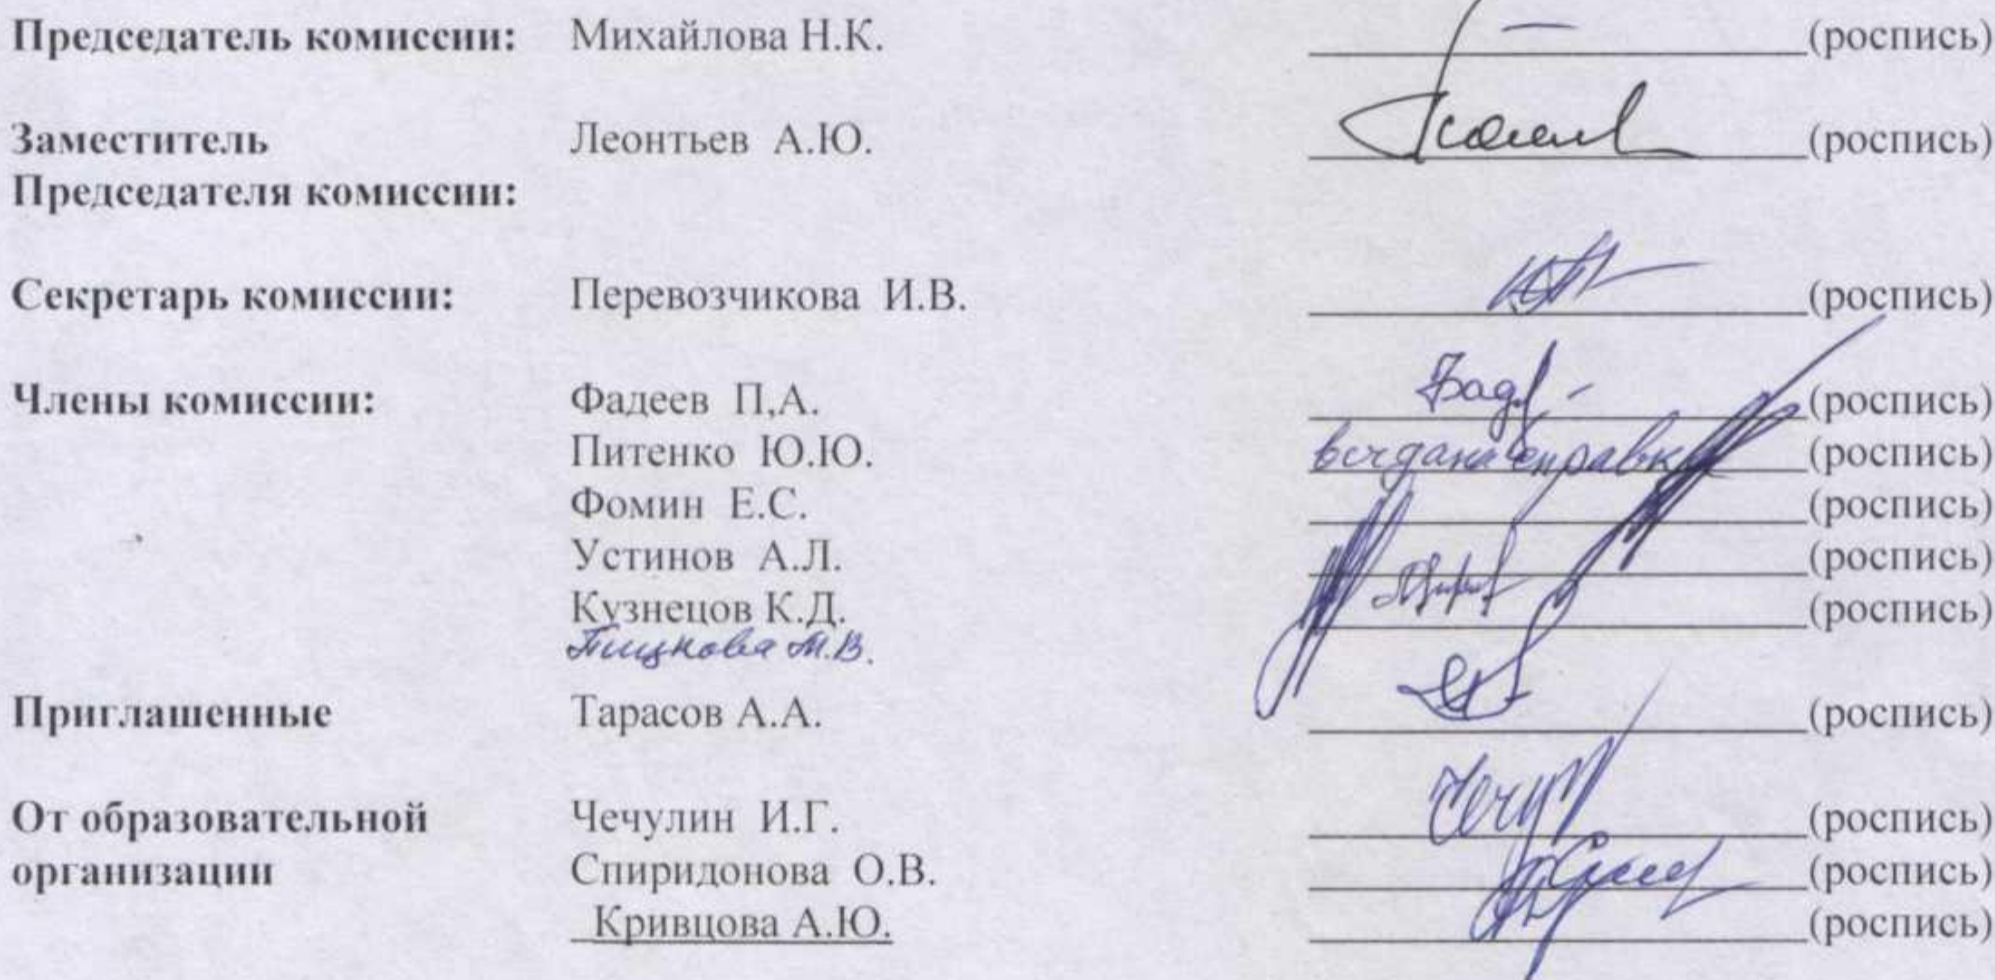 Председатель комиссии: Михайлова Н.К. (роспись)
Заместитель Леонтьев А.Ю. (роспись)
Председателя комиссии:
Секретарь комиссии: Перевозчикова И.В. (роспись)
Члены комиссии: Фадеев П,А. (роспись)
Питенко Ю.Ю. выдана справка (роспись)
Фомин Е.С. (роспись)
Устинов А.Л. (роспись)
Кузнецов К.Д. (роспись)
М.В.
Приглашенные Тарасов А.А. (роспись)
От образовательной Чечулин И.Г. (роспись)
организации Спиридонова О.В. (роспись)
Кривцова А.Ю. (роспись)